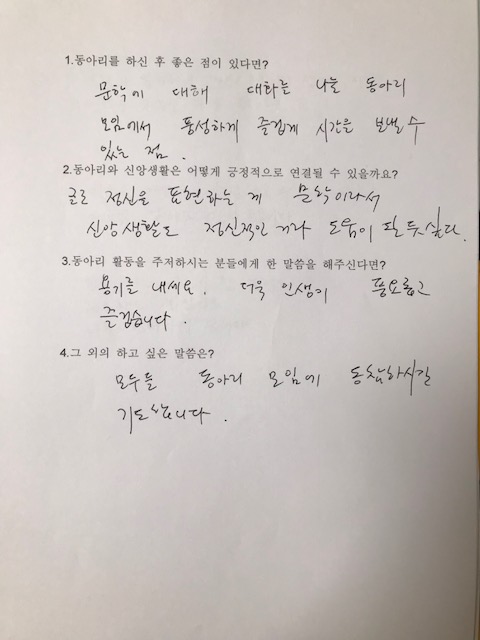 1.동아리를 하신 후 좋은 점이 있다면?
문학에 대해 대화를 나눌 동아리
모임에서 풍성하게 즐겁게 시간을 보낼 수
있는 점.
2.동아리와 신앙생활은 어떻게 긍정적으로 연결될 수 있을까요?
글로 정신을 표현하는 게 문학이라서
신앙생활도 정신적인 거라 도움이 될 듯 싶다.
3.동아리 활동을 주저하시는 분들에게 한 말씀을 해주신다면?
용기를 내세요. 더욱 인생이 풍요롭고
즐겁습니다.
4.그 외의 하고 싶은 말씀은?
모두들 동아리 모임에 동참하시길
기도합니다.